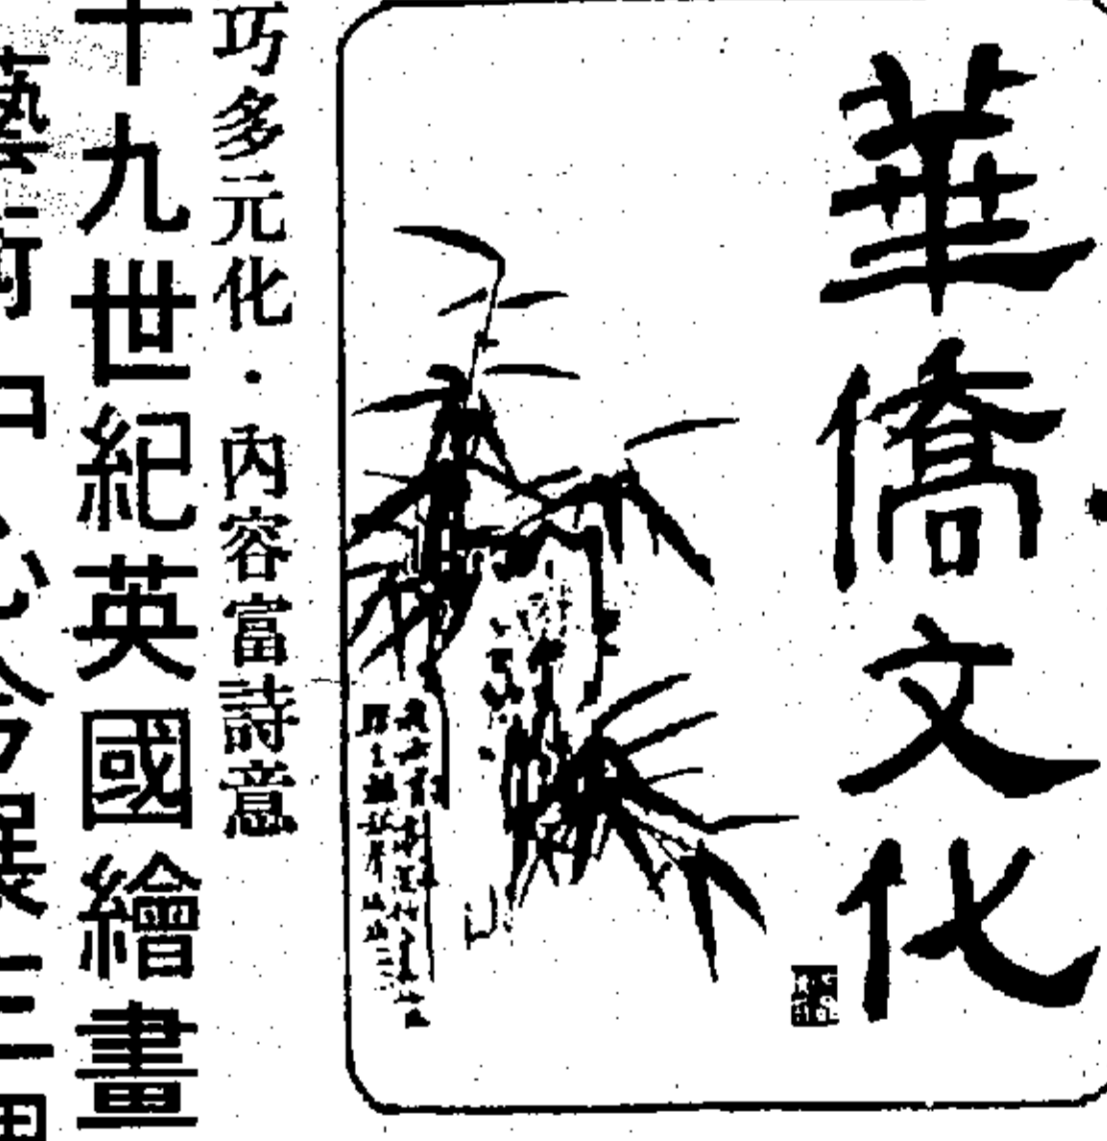 華僑文化
巧多元化·內容富詩意
十九世紀英國繪畫
藝術
展三個